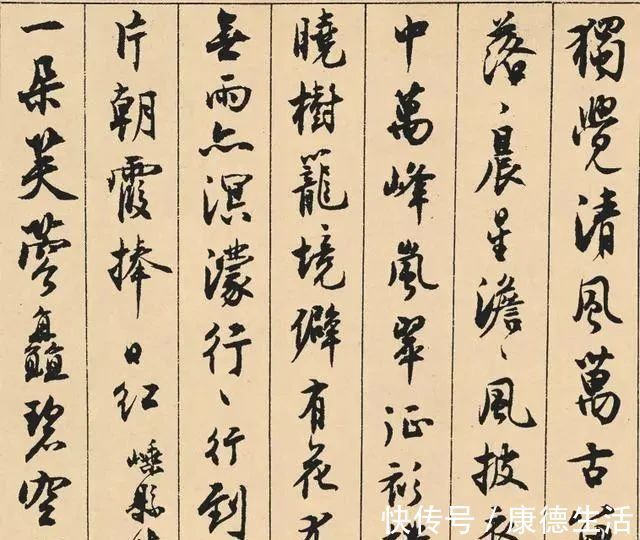 獨覺清風萬古
落、晨星澹、風披
中萬峰嵐翠征衫
曉樹籠境僻有花
無雨亦溟濛行、行到
片朝霞捧日紅 嵊縣
一朵芙蓉矗碧空
快传号/康德生活